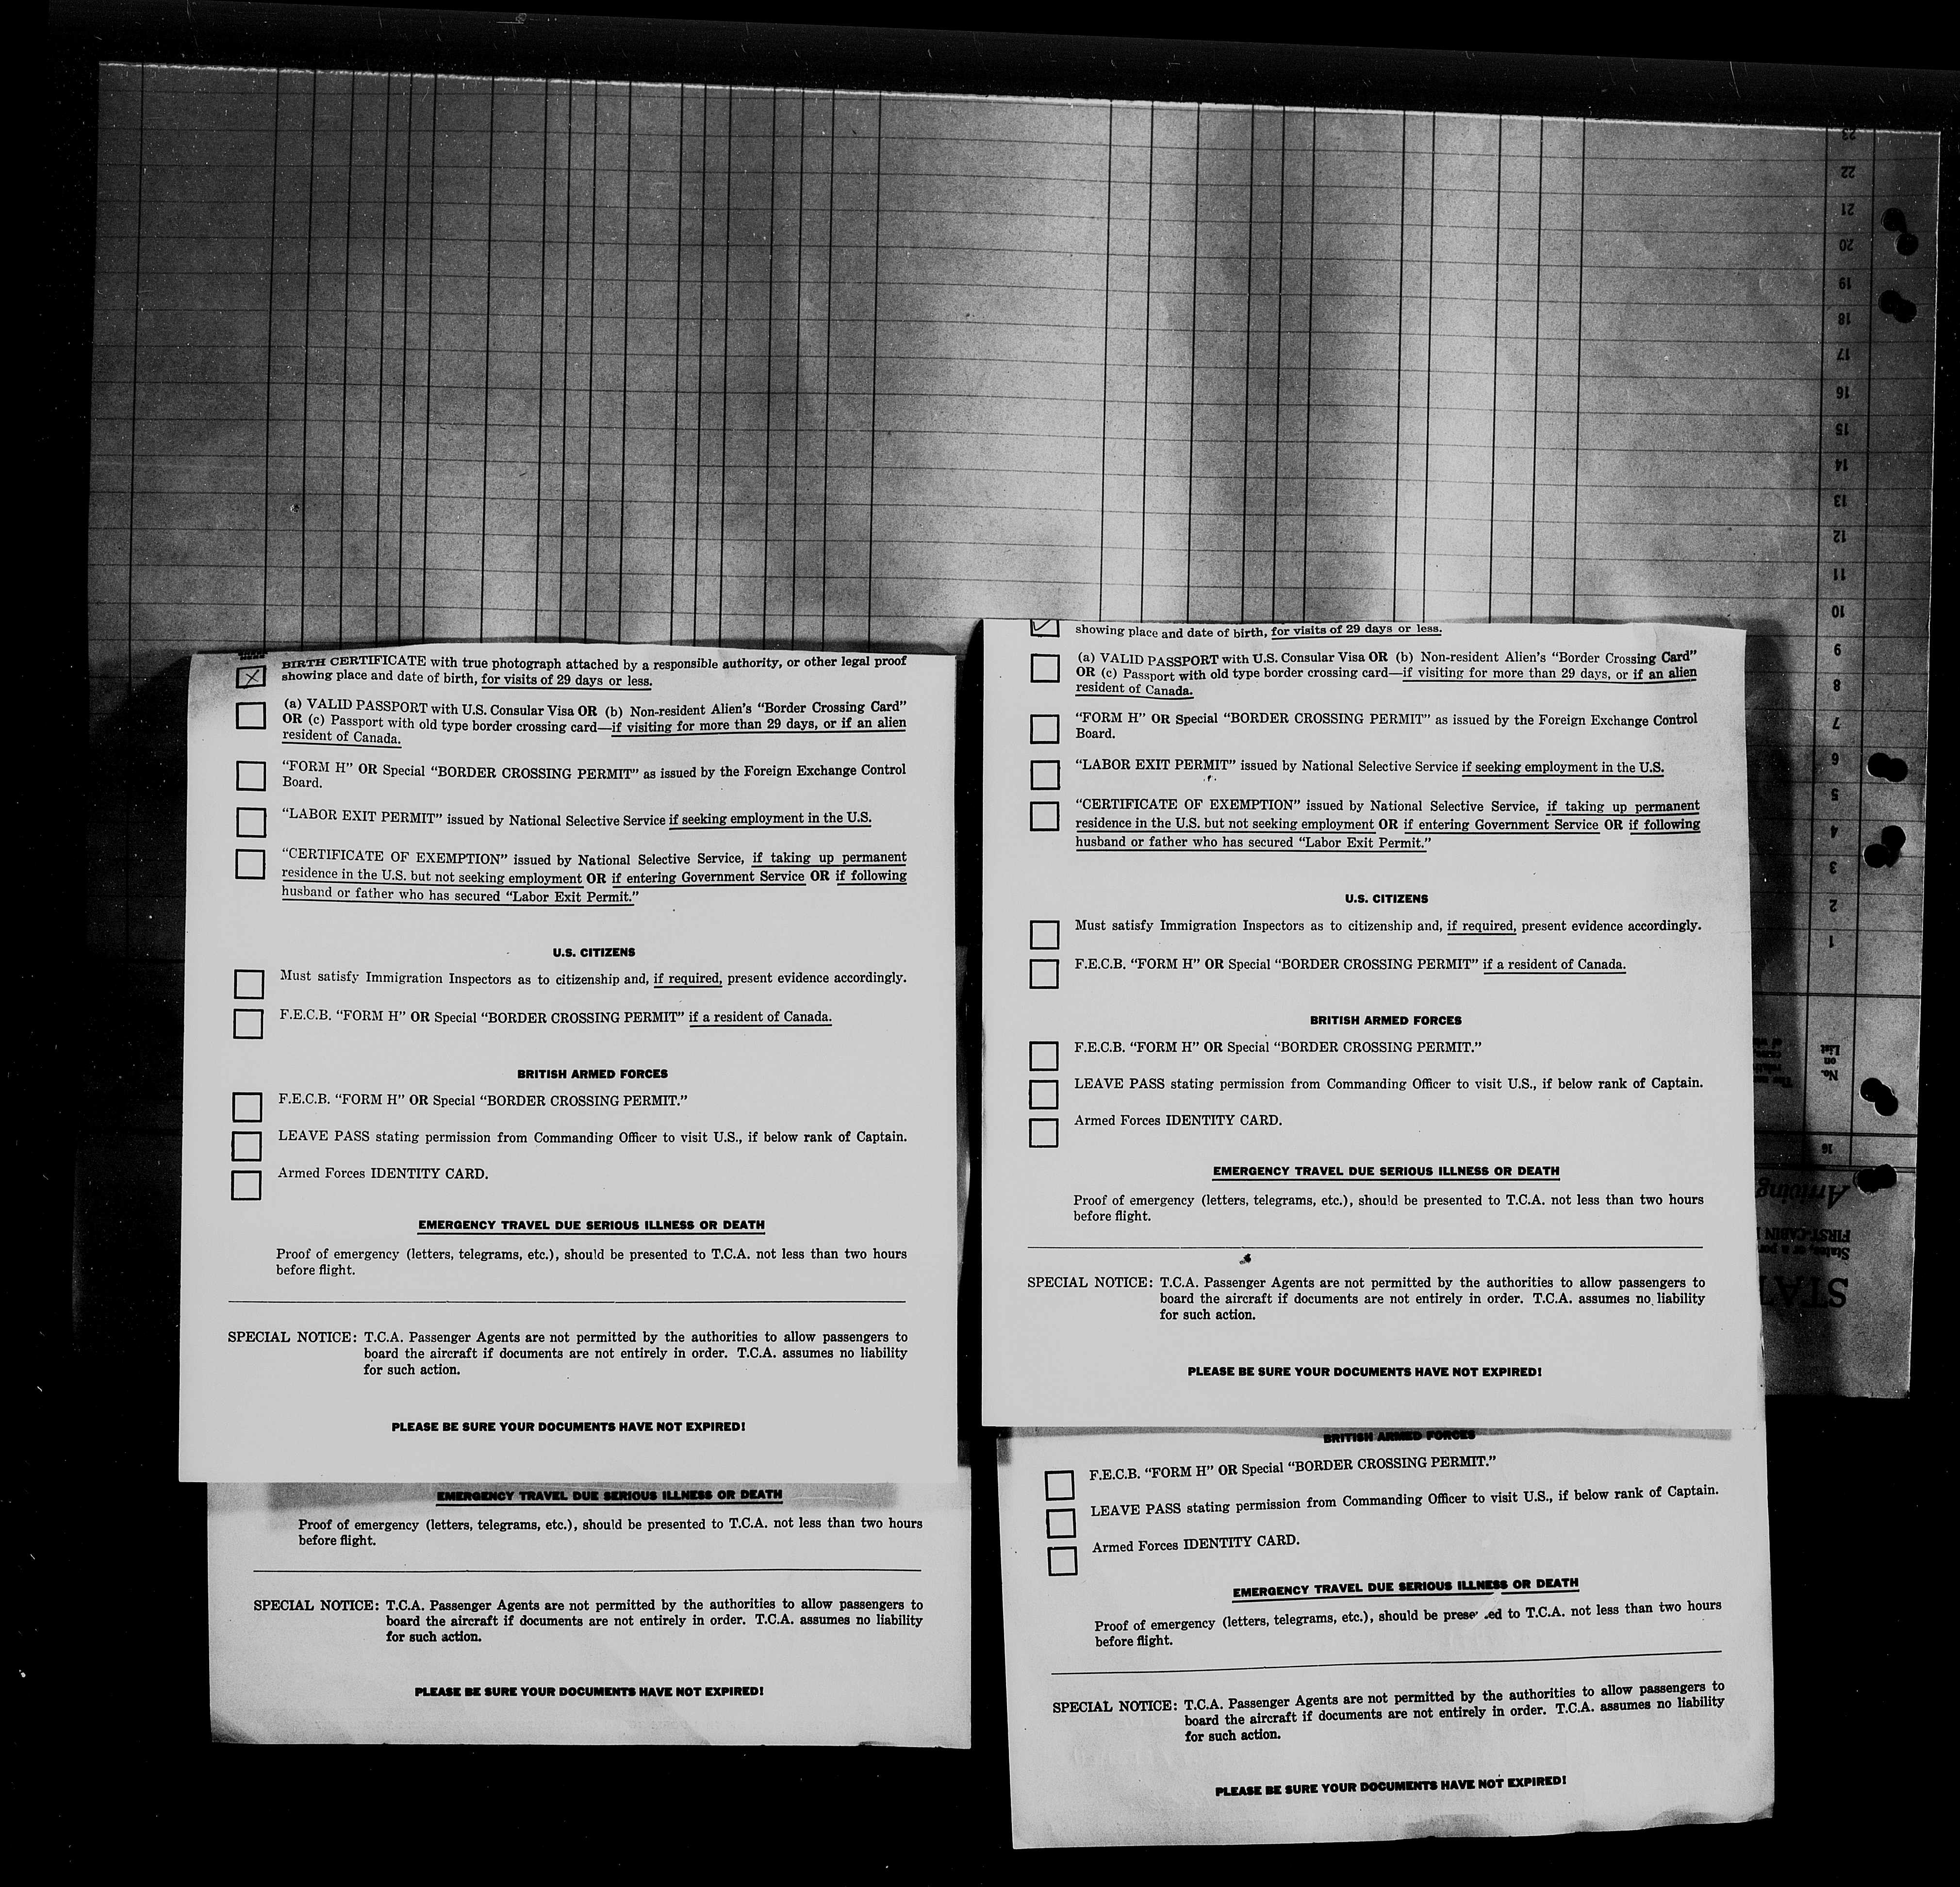 BIRTH CERTIFICATE with true photograph attached by a responsible authority, or other legal proof
showing place and date of birth, for visits of 29 days or less.
(a) VALID PASSPORT with U.S. Consular Visa OR (b) Non-resident Alien's “Border Crossing Card”
OR (c) Passport with old type border crossing card—if visiting for more than 29 days, or if an alien
resident of Canada.
“FORM H” OR Special “BORDER CROSSING PERMIT” as issued by the Foreign Exchange Control
Board.
“LABOR EXIT PERMIT” issued by National Selective Service if seeking employment in the U.S.
“CERTIFICATE OF EXEMPTION” issued by National Selective Service, if taking up permanent
residence in the U.S. but not seeking employment OR if entering Government Service OR if following
husband or father who has secured “Labor Exit Permit.”
U.S. CITIZENS
Must satisfy Immigration Inspectors as to citizenship and, if required, present evidence accordingly.
F.E.C.B. “FORM H” OR Special “BORDER CROSSING PERMIT” if a resident of Canada.
BRITISH ARMED FORCES
F.E.C.B. “FORM H” OR Special “BORDER CROSSING PERMIT.”
LEAVE PASS stating permission from Commanding Officer to visit U.S., if below rank of Captain.
Armed Forces IDENTITY CARD.
EMERGENCY TRAVEL DUE SERIOUS ILLNESS OR DEATH
Proof of emergency (letters, telegrams, etc.), should be presented to T.C.A. not less than two hours
before flight.
SPECIAL NOTICE: T.C.A. Passenger Agents are not permitted by the authorities to allow passengers to
board the aircraft if documents are not entirely in order. T.C.A. assumes no liability
for such action.
PLEASE BE SURE YOUR DOCUMENTS HAVE NOT EXPIRED!
EMERGENCY TRAVEL DUE SERIOUS ILLNESS OR DEATH
Proof of emergency (letters, telegrams, etc.), should be presented to T.C.A. not less than two hours
before flight.
SPECIAL NOTICE: T.C.A. Passenger Agents are not permitted by the authorities to allow passengers to
board the aircraft if documents are not entirely in order. T.C.A. assumes no liability
for such action.
PLEASE BE SURE YOUR DOCUMENTS HAVE NOT EXPIRED!
showing place and date of birth, for visits of 29 days or less.
(a) VALID PASSPORT with U.S. Consular Visa OR (b) Non-resident Alien's “Border Crossing Card”
OR (c) Passport with old type border crossing card—if visiting for more than 29 days, or if an alien
resident of Canada.
“FORM H” OR Special “BORDER CROSSING PERMIT” as issued by the Foreign Exchange Control
Board.
“LABOR EXIT PERMIT” issued by National Selective Service if seeking employment in the U.S.
“CERTIFICATE OF EXEMPTION” issued by National Selective Service, if taking up permanent
residence in the U.S. but not seeking employment OR if entering Government Service OR if following
husband or father who has secured “Labor Exit Permit.”
U.S. CITIZENS
Must satisfy Immigration Inspectors as to citizenship and, if required, present evidence accordingly.
F.E.C.B. “FORM H” OR Special “BORDER CROSSING PERMIT” if a resident of Canada.
BRITISH ARMED FORCES
F.E.C.B. “FORM H” OR Special “BORDER CROSSING PERMIT.”
LEAVE PASS stating permission from Commanding Officer to visit U.S., if below rank of Captain.
Armed Forces IDENTITY CARD.
EMERGENCY TRAVEL DUE SERIOUS ILLNESS OR DEATH
Proof of emergency (letters, telegrams, etc.), should be presented to T.C.A. not less than two hours
before flight.
SPECIAL NOTICE: T.C.A. Passenger Agents are not permitted by the authorities to allow passengers to
board the aircraft if documents are not entirely in order. T.C.A. assumes no liability
for such action.
PLEASE BE SURE YOUR DOCUMENTS HAVE NOT EXPIRED!
BRITISH ARMED FORCES
F.E.C.B. “FORM H” OR Special “BORDER CROSSING PERMIT.”
LEAVE PASS stating permission from Commanding Officer to visit U.S., if below rank of Captain.
Armed Forces IDENTITY CARD.
EMERGENCY TRAVEL DUE SERIOUS ILLNESS OR DEATH
Proof of emergency (letters, telegrams, etc.), should be prese ed to T.C.A. not less than two hours
before flight.
SPECIAL NOTICE: T.C.A. Passenger Agents are not permitted by the authorities to allow passengers to
board the aircraft if documents are not entirely in order. T.C.A. assumes no liability
for such action.
PLEASE BE SURE YOUR DOCUMENTS HAVE NOT EXPIRED!
STAT
States, or a
FIRST-CABIN
Arriving
16
No.
on
List
The
1
2
3
4
5
6
7
8
9
10
11
12
13
14
15
16
17
18
19
20
21
22
23